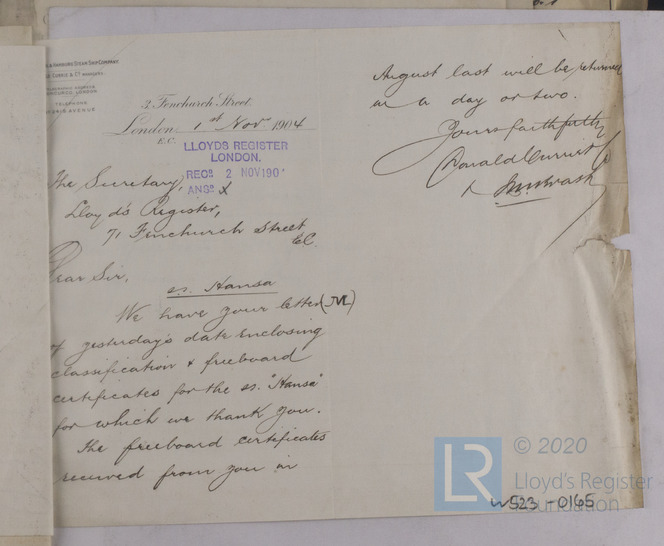 & HAMBURG STEAM SHIP COMPANY.
CURRIE & Co MANAGERS.
LONDON.
TELEPHONE
AVENUE
3, Fenchurch Street,
London, 1st Novr 1904
E.C.
LLOYDS REGISTER
LONDON.
RECD. 2 NOV 190
ANSD.
The Secretary,
Lloyd's Register,
71 Fenchurch Street
E.C.
Dear Sir,
ss. Hansa
We have your letter (M)
of yesterday's date enclosing
classification & freeboard
certificates for the ss. "Hansa"
for which we thank you.
The freeboard certificates
received from you in
August last will be returned
in a day or two.
Yours faithfully
Donald Currie
© 2020
LR
Lloyd's Register
Foundation
W523-0165